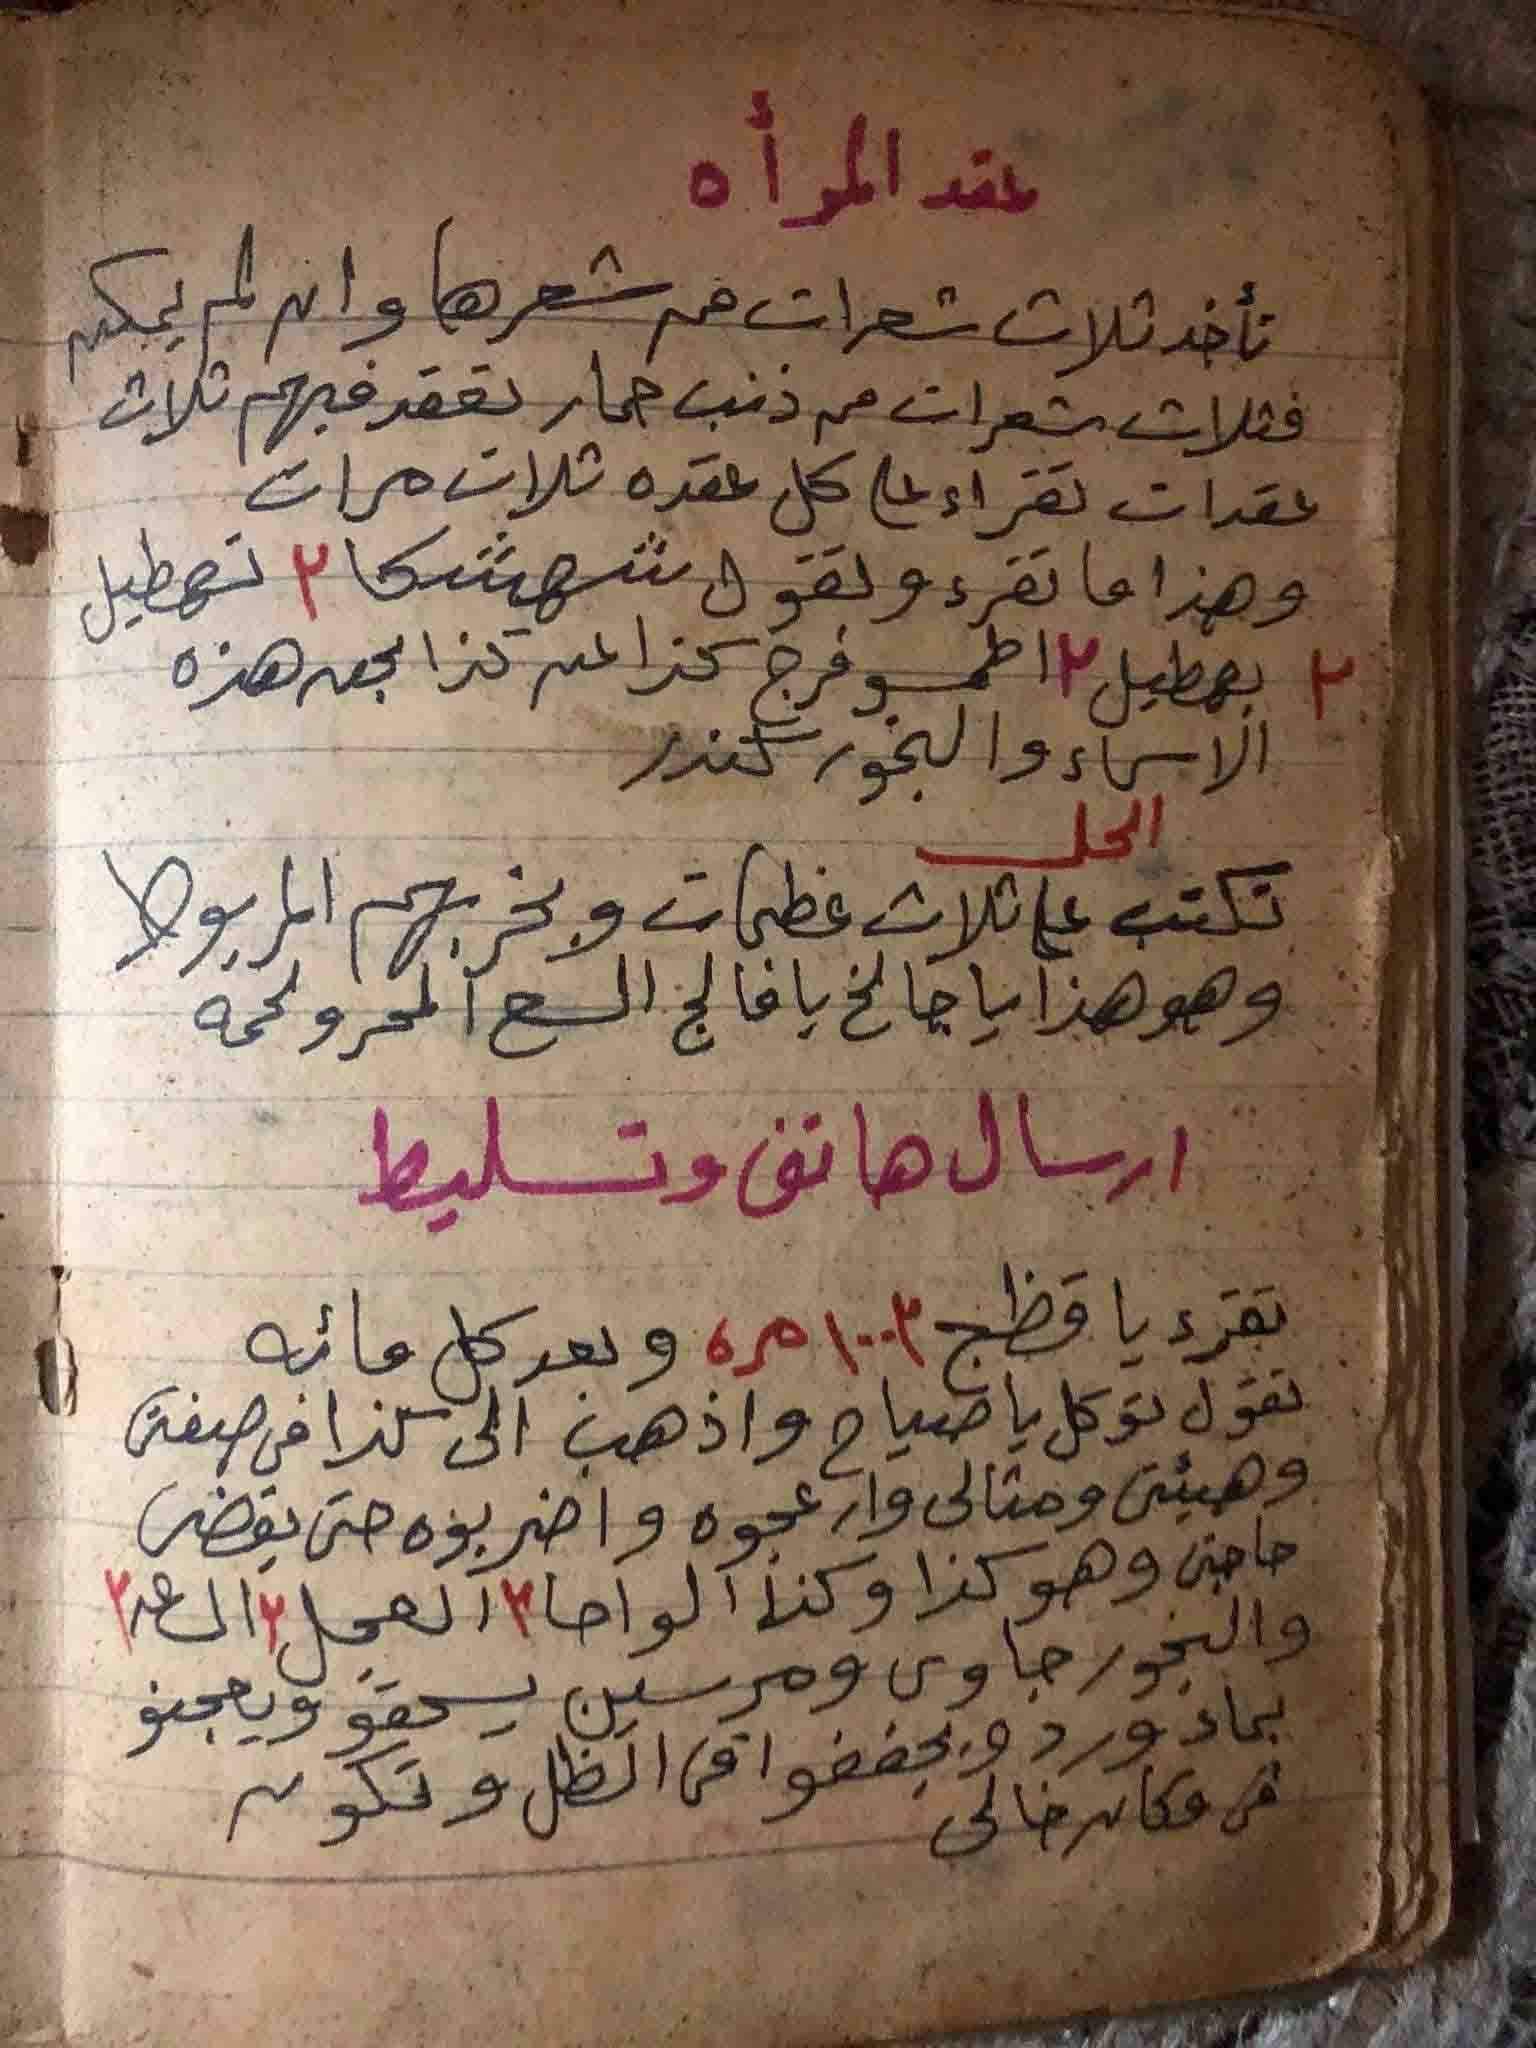 عقد المرأه
تأخد ثلاث شعرات من شعرها وان لم يمكن
فثلاث شعرات من ذنب حمار تعقد فيهم ثلاث
عقدات تقراء على كل عقده ثلاث مرات
وهذا ما تقرء وتقول شهشكا ٢ تهطيل
٢ بهطيل ٢ اطمـو فرج كذا عن كذا بحق هذه
الاسماء والبخور كندر
الحل
تكتب على ثلاث عظمات وبخر بهم المربوط
وهو هذا يا يا فالج
ارسال هاتف وتسليط
تقرء يا قظج ١٠٠٣ مره وبعد كل مائه
تقول توكل يا صياح واذهب الى كذا في صفتى
وهيئتى ومثالى وازعجوه واضربوه حتى يقضى
حاجتى وهو كذا وكذا الواحا ٢ العجل ٢ ٢
والبخور جاوى ومرسين يسحقو ويعجنو
بماء ورد ويجففوا فى الظل وتكون
فى مكان خالى